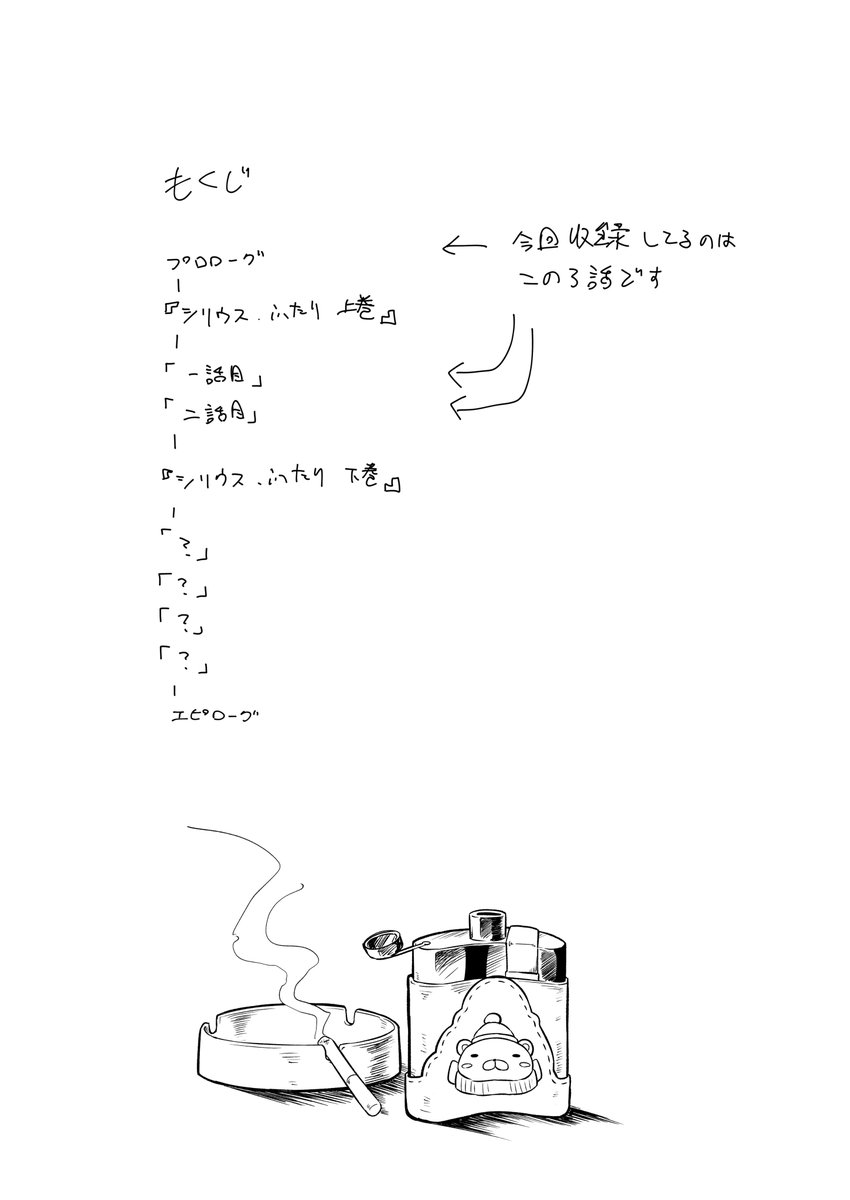 もくじ
プロローグ
|
『シリウス.ふたり 上巻』
|
「一話目」
「二話目」
|
『シリウス.ふたり 下巻』
|
「?」
「?」
「?」
「?」
|
エピローグ
← 今回収録してるのは
この3話です